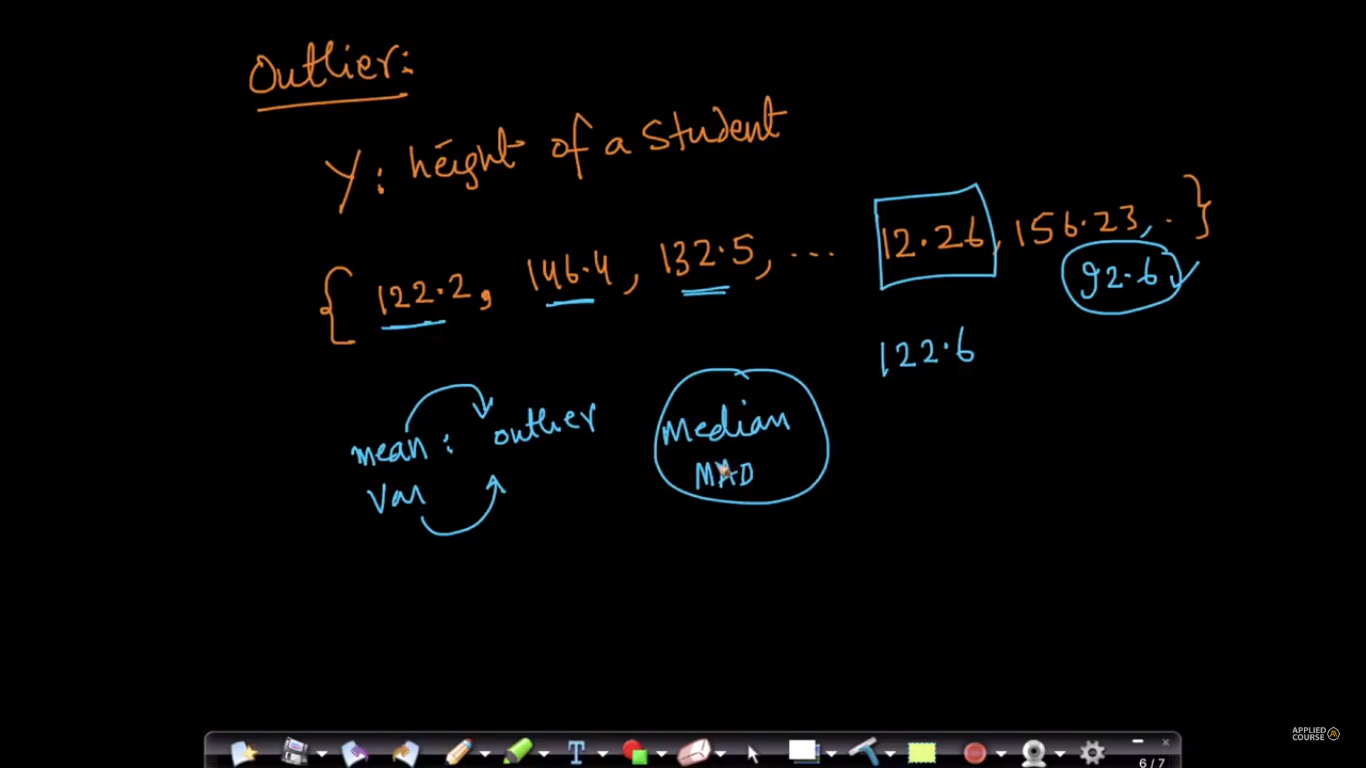 Outlier:
Y: height of a Student
{ 122.2, 146.4, 132.5, ... 12.26, 156.23, . }
92.6
122.6
mean: outlier
Var
Median
MAD
APPLIED
COURSE
6/7